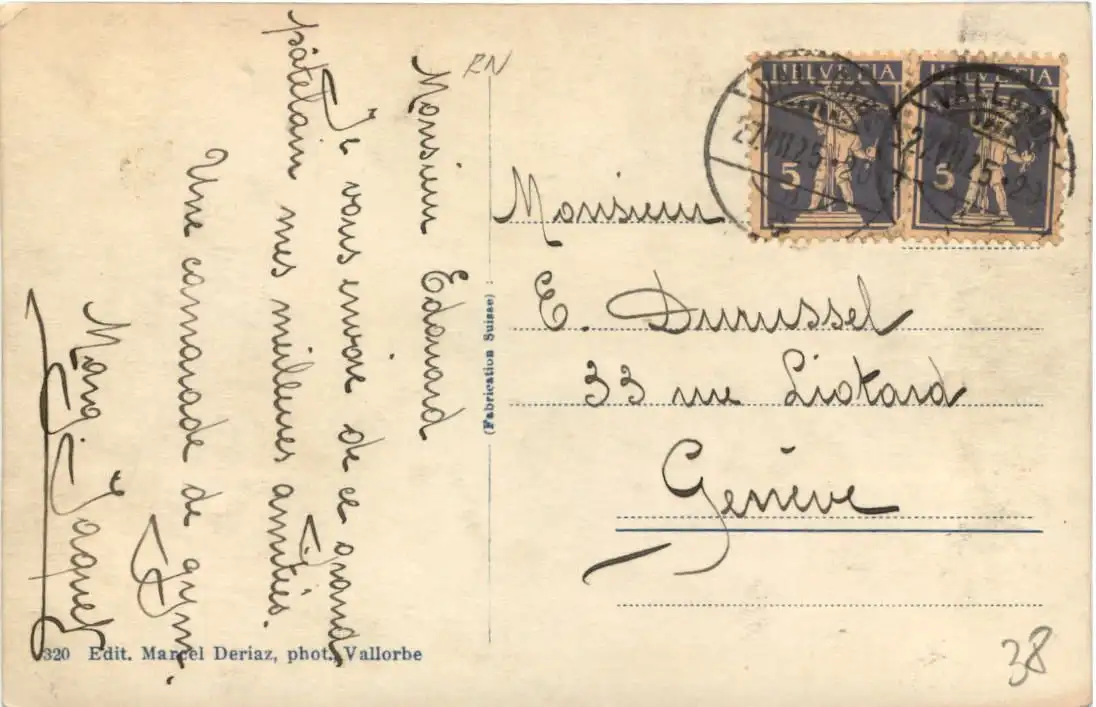 Monsieur Edouard
Je vous envoie de ce grand
patelain mes meilleures amitiés.
Une camarade de gym.
Jaques
RN
(Fabrication Suisse)
HELVETIA HELVETIA
5 5
VALLORBE
27.VII.25
27.VII.25
Monsieur
E. Durussel
33 rue Liotard
Genève
38
320 Edit. Marcel Deriaz, phot., Vallorbe